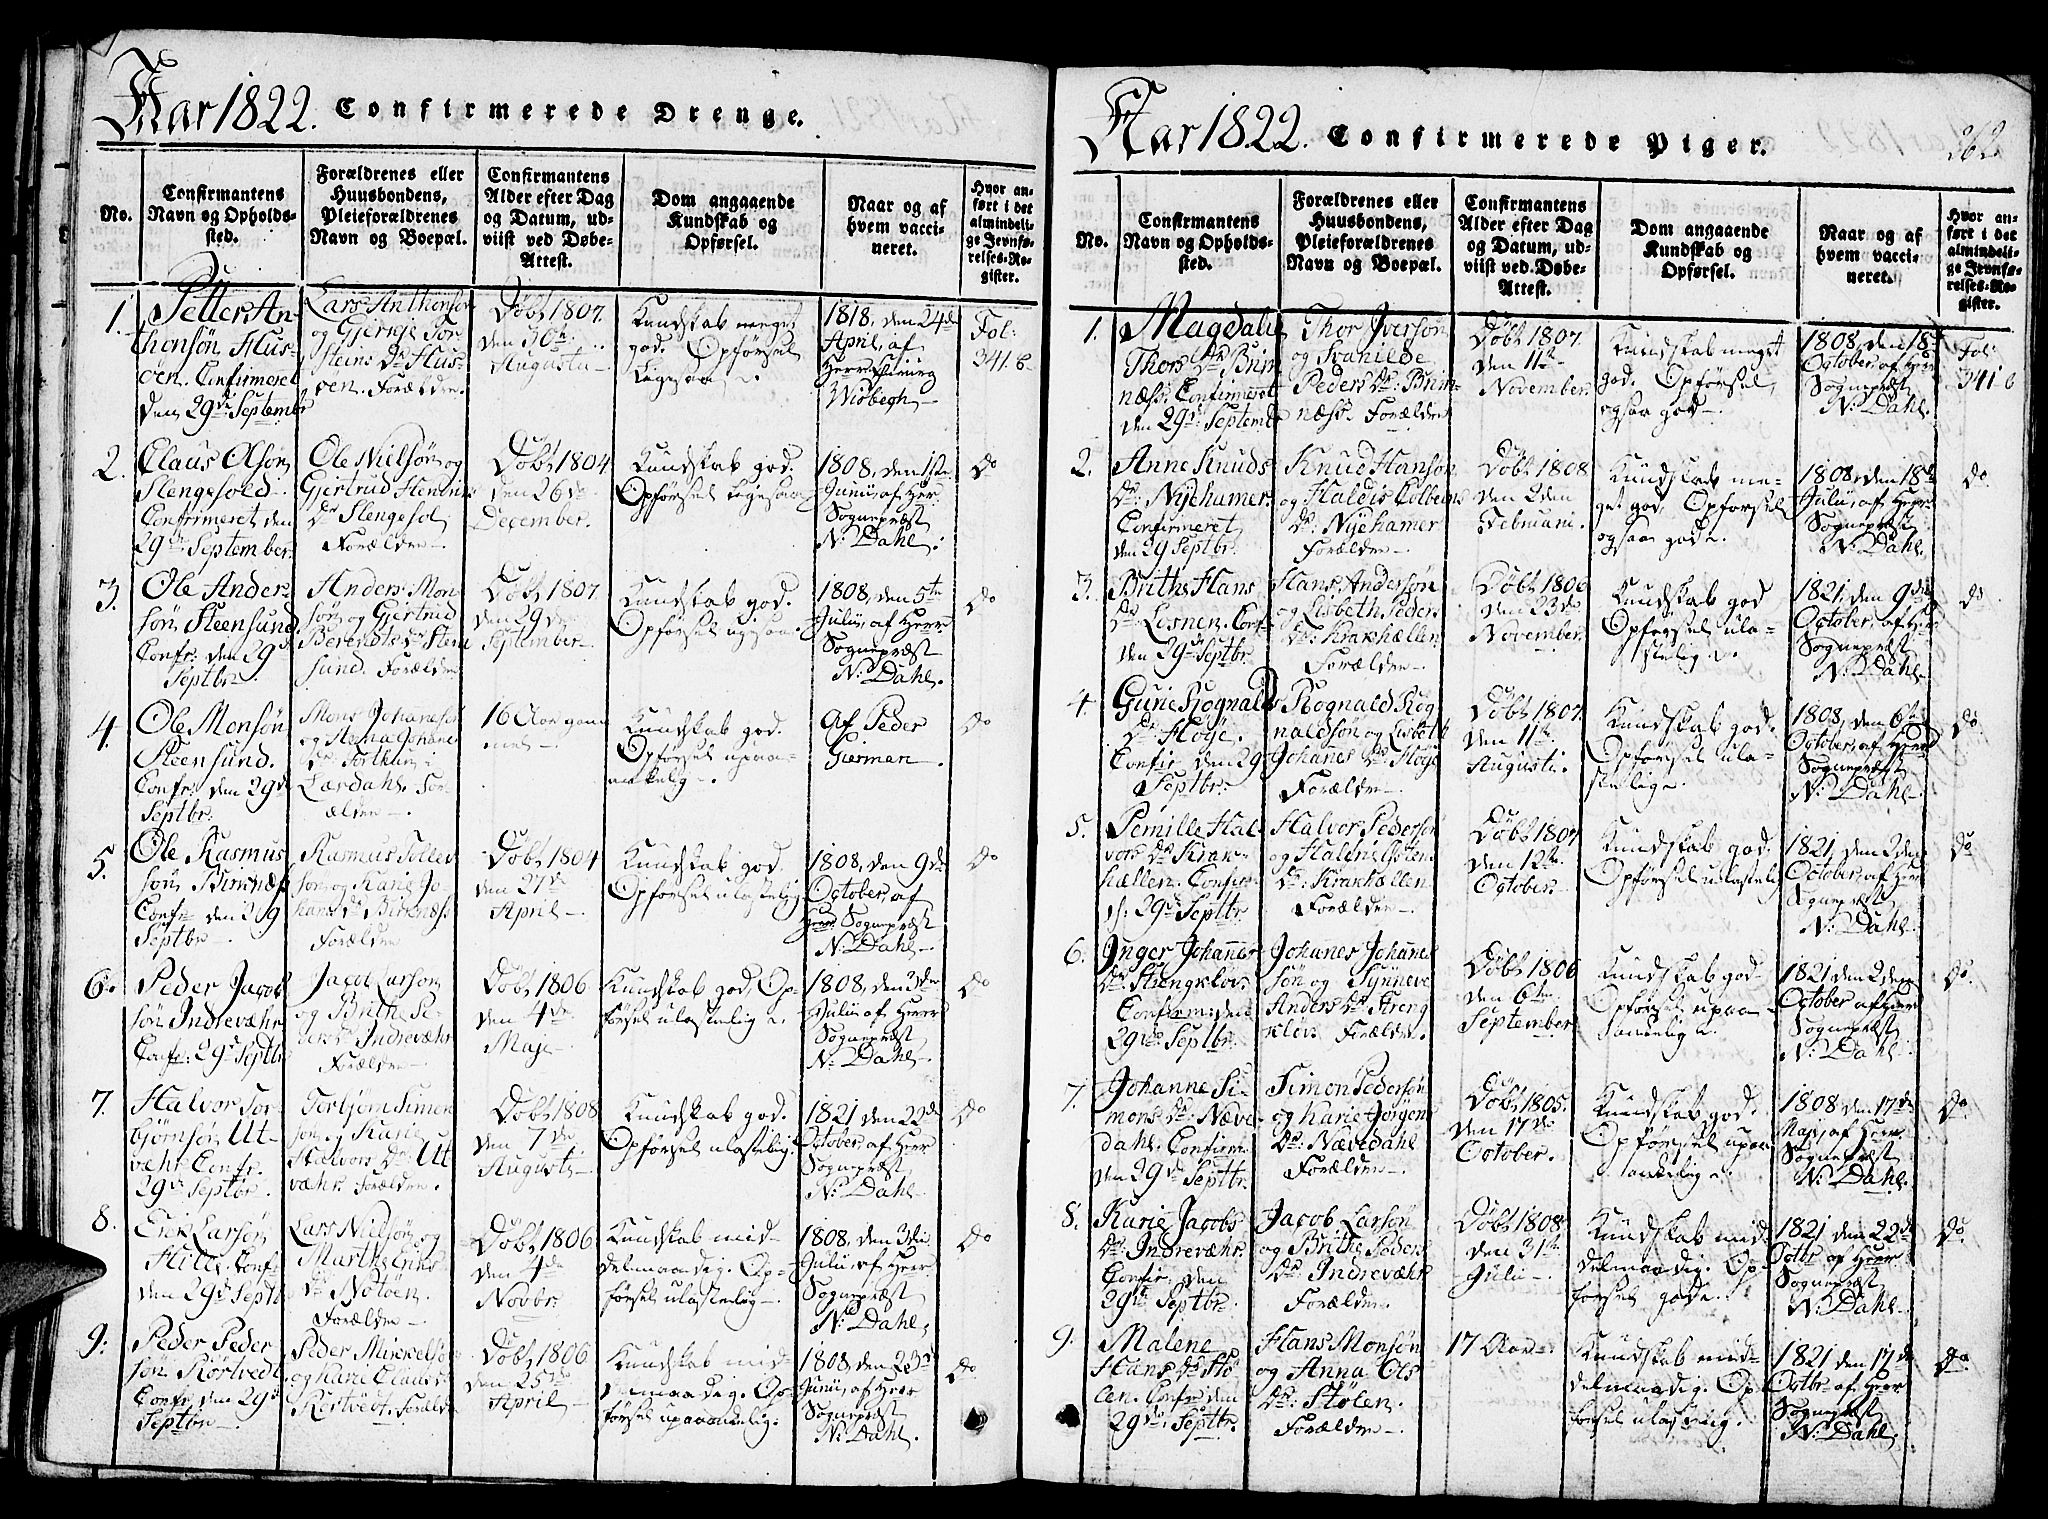 Aar 1822. Confirmerede Drenge.
No.
Confirmantens
Navn og Opholds-
sted.
Forældrenes eller
Huusbondens,
Pleieforældrenes
Navn og Boepæl.
Confirmantens
Alder efter Dag
og Datum, ud-
viist ved Døbe-
Attest.
Dom angaaende
Kundskab og
Opførsel.
Naar og af
hvem vacci-
neret.
Hvor an-
ført i det
almindeli-
ge Jevnfø-
relses-Re-
gister.
1.
Petter An-
thonsøn Hus-
øen. Confirmeret
den 29de Septembr
Lars Anthonsøn
og Gjertje Tor-
steins Dr Hus-
øen. Forældre.
Døbt 1807.
den 30te
Augusti
Kundskab meget
god. Opførsel
ligesaa
1818, den 24de
April, af
Herr
Wiibegh
Fol:
341. b
2.
Claus Olsøn
Slengesold
Confirmeret den
29de September.
Ole Nielsøn og
Gjertrud Henriks
Dr Slengesol
Forældre
Døbt 1804
den 26de
December.
Kundskab god.
Opførsel ligesaa
1808, den 1ste
Junii, af Herr
Sognepræst
N: Dahl.
do
3.
Ole Ander-
søn Steensund
Confr: den 29d
Septbr
Anders Mon-
søn og Gjertrud
Berendts Dr Steen
sund. Forældre
Døbt 1807
den 29de
September
Kundskab god.
Opførsel ogsaa
1808, den 5te
Julii, af Herr
Sognepræst
N: Dahl.
do
4.
Ole Monsøn
Steensund.
Confr: den 29de
Septbr:
Mons Johanesøn
og Anna Johane
Dr Torthun
Lærdahl. For-
ældre
16 Aar gam
mel
Kundskab god.
Opførsel upaa-
ankelig
Af Peder
Giermen
do
5.
Ole Rasmus
søn Birknæs
Confr den 29
Septbr
Rasmus Tollev
søn og Karie Jo-
hans Dr Birknæs
Forældre
Døbt 1804
den 27de
April
Kundskab god
Opførsel ulastelig
1808, den 9de
October, af
Herr Sognepræst
N: Dahl
do
6.
Peder Jacob
søn Indrevæhr
Confr: 29d Septbr
Jacob Larsøn
og Brithe Pe-
ders Dr Indrevæhr
Forældre
Døbt 1806
den 4de
Maje
Kundskab god, Op-
førsel ulastelig
1808, den 3die
Julii, af Herr
Sognepræst
N: Dahl
do
7.
Halvor Tor-
bjønsøn Ut-
væhr Confr.
29de Septbr.
Torbjørn Simen
søn og Karie
Halvors Dr: Ut
væhr. Forældre.
Døbt 1808
den 7de
Augusti
Kundskab god.
Opførsel ulastelig.
1821 den 22de
October, af Herr
Sognepræst
N: Dahl
do
8.
Erik Larsøn
Hille. Confr
den 29d Septb
Lars Nielsøn og
Marthe Eriks
Dr Nøtøen
Forældre
Døbt 1806
den 4de
Novbr.
Kundskab mid-
delmaadig. Op-
førsel ulastelig
1808, den 3die
Julii, af Herr
Sognepræst
N: Dahl.
do
9.
Peder Peder
søn Kiørtvedt
Confr. den 29d
Septbr
Peder Mikkelsø
og Karie Claus D
Kortvedt. Forældre
Døbt 1806
den 25de
April
Kundskab mid-
delmaadig. Op-
førsel upaaankelig.
1808, den 23de
Junii, af Herr
Sognepræst
N: Dahl.
do
Aar 1822. Confirmerede Piger.
262
No.
Confirmantens
Navn og Opholds-
sted.
Forældrenes eller
Huusbondens,
Pleieforældrenes
Navn og Boepæl.
Confirmantens
Alder efter Dag
og Datum, ud-
viist ved Døbe-
Attest.
Dom angaaende
Kundskab og
Opførsel.
Naar og af
hvem vacci-
neret.
Hvor an-
ført i det
almindeli-
ge Jevnfø-
relses-Re-
gister.
1.
Magdalie
Thors Dr Brim
næss. Confirmeret
den 29de Septembr
Thor Jversøn
og Svanilde
Peders Dr: Brim-
næss. Forældre
Døbt 1807.
den 11te
November.
Kundskab meget
god. Opførsel
ogsaa god
1808, den 18de
October, af Herr
Sognepræst
N: Dahl.
Fol:
341. b
2.
Anne Knuds
Dr: Nyehamer.
Confirmeret
den 29 Septbr.
Knud Hansøn
og Haldis Colbeins
Dr: Nyehamer
Forældre
Døbt 1808
den 2den
Februarii.
Kundskab me-
get god. Opførsel
ogsaa god
1808, den 18de
Julii, af Herr
Sognepræst
N: Dahl.
do.
3.
Brithe Hans
Dr. Losnen. Conf-
den 29de Septbr
Hans Andersøn
og Lisbeth Peders
Dr. Krakhællen
Forældre
Døbt 1806
den 23de
November.
Kundskab god
Opførsel ula-
stelig
1821, den 9de
October, af Herr
Sognepræst
N: Dahl.
do
4.
Gurie Rognalds
Dr Høje.
Confir den 29
Septbr:
Rognald Rog
naldsøn og Lisbeth
Johanes Dr Høje
Forældre
Døbt 1807.
den 11te
Augusti.
Kundskab god.
Opførsel ula-
stelig
1808, den 6te
October, af Herr
Sognepræst
N: Dahl
do.
5.
Pernille Hal-
vors Dr Krak-
hællen. Confr.
d: 29d Septbr
Halvor Pedersøn
Dr. Krakhællen
Forældre
Døbt 1807
den 12te
October.
Kundskab god.
Opførsel ulastelig
1821 den 2den
October, af Herr
Sognepræst
N: Dahl
do.
6.
Inger Johanes
Dr. Strengklev.
Confirm: den
29de Septbr.
Johanes Johane
søn og Synneve
Anders Dr. Streng
klev. Forældre.
Døbt 1806
den 6te
September.
Kundskab god
Opførsel upaa-
ankelig
1821 den 2den
October af Herr
Sognepræst
N: Dahl
do.
7.
Johanne Si-
mons Dr. Næve-
dahl. Confirm.
den 29de Septbr.
Simon Pedersøn
og Karie Jørgens
Dr. Nævedahl
Forældre
Døbt 1805.
den 17de
October.
Kundskab god.
Opførsel upaa
ankelig
1808 den 17de
Maji, af Herr
Sognepræst
N: Dahl.
do.
8.
Karie Jacobs
Dr. Indrevæhr.
Confir den
29de Septbr.
Jacob Larsøn
og Brithe Peders
Dr. Indrevæhr
Forældre.
Døbt 1808.
den 31te
Julii
Kundskab mid-
delmaadig. Op-
førsel god
1821 den 22de
Octbr af Herr
Sognepræst
N: Dahl
do.
9.
Malene
Hans Dr Stø-
len. Confr den
29de Septbr.
Hans Monsøn
og Anna Ols
Dr. Stølen.
Forældre
17 Aar
Kundskab mid-
delmaadig. Op
førsel ulastelig.
1821 den 17de
Octbr af Herr
Sognepræst
N: Dahl.
do.